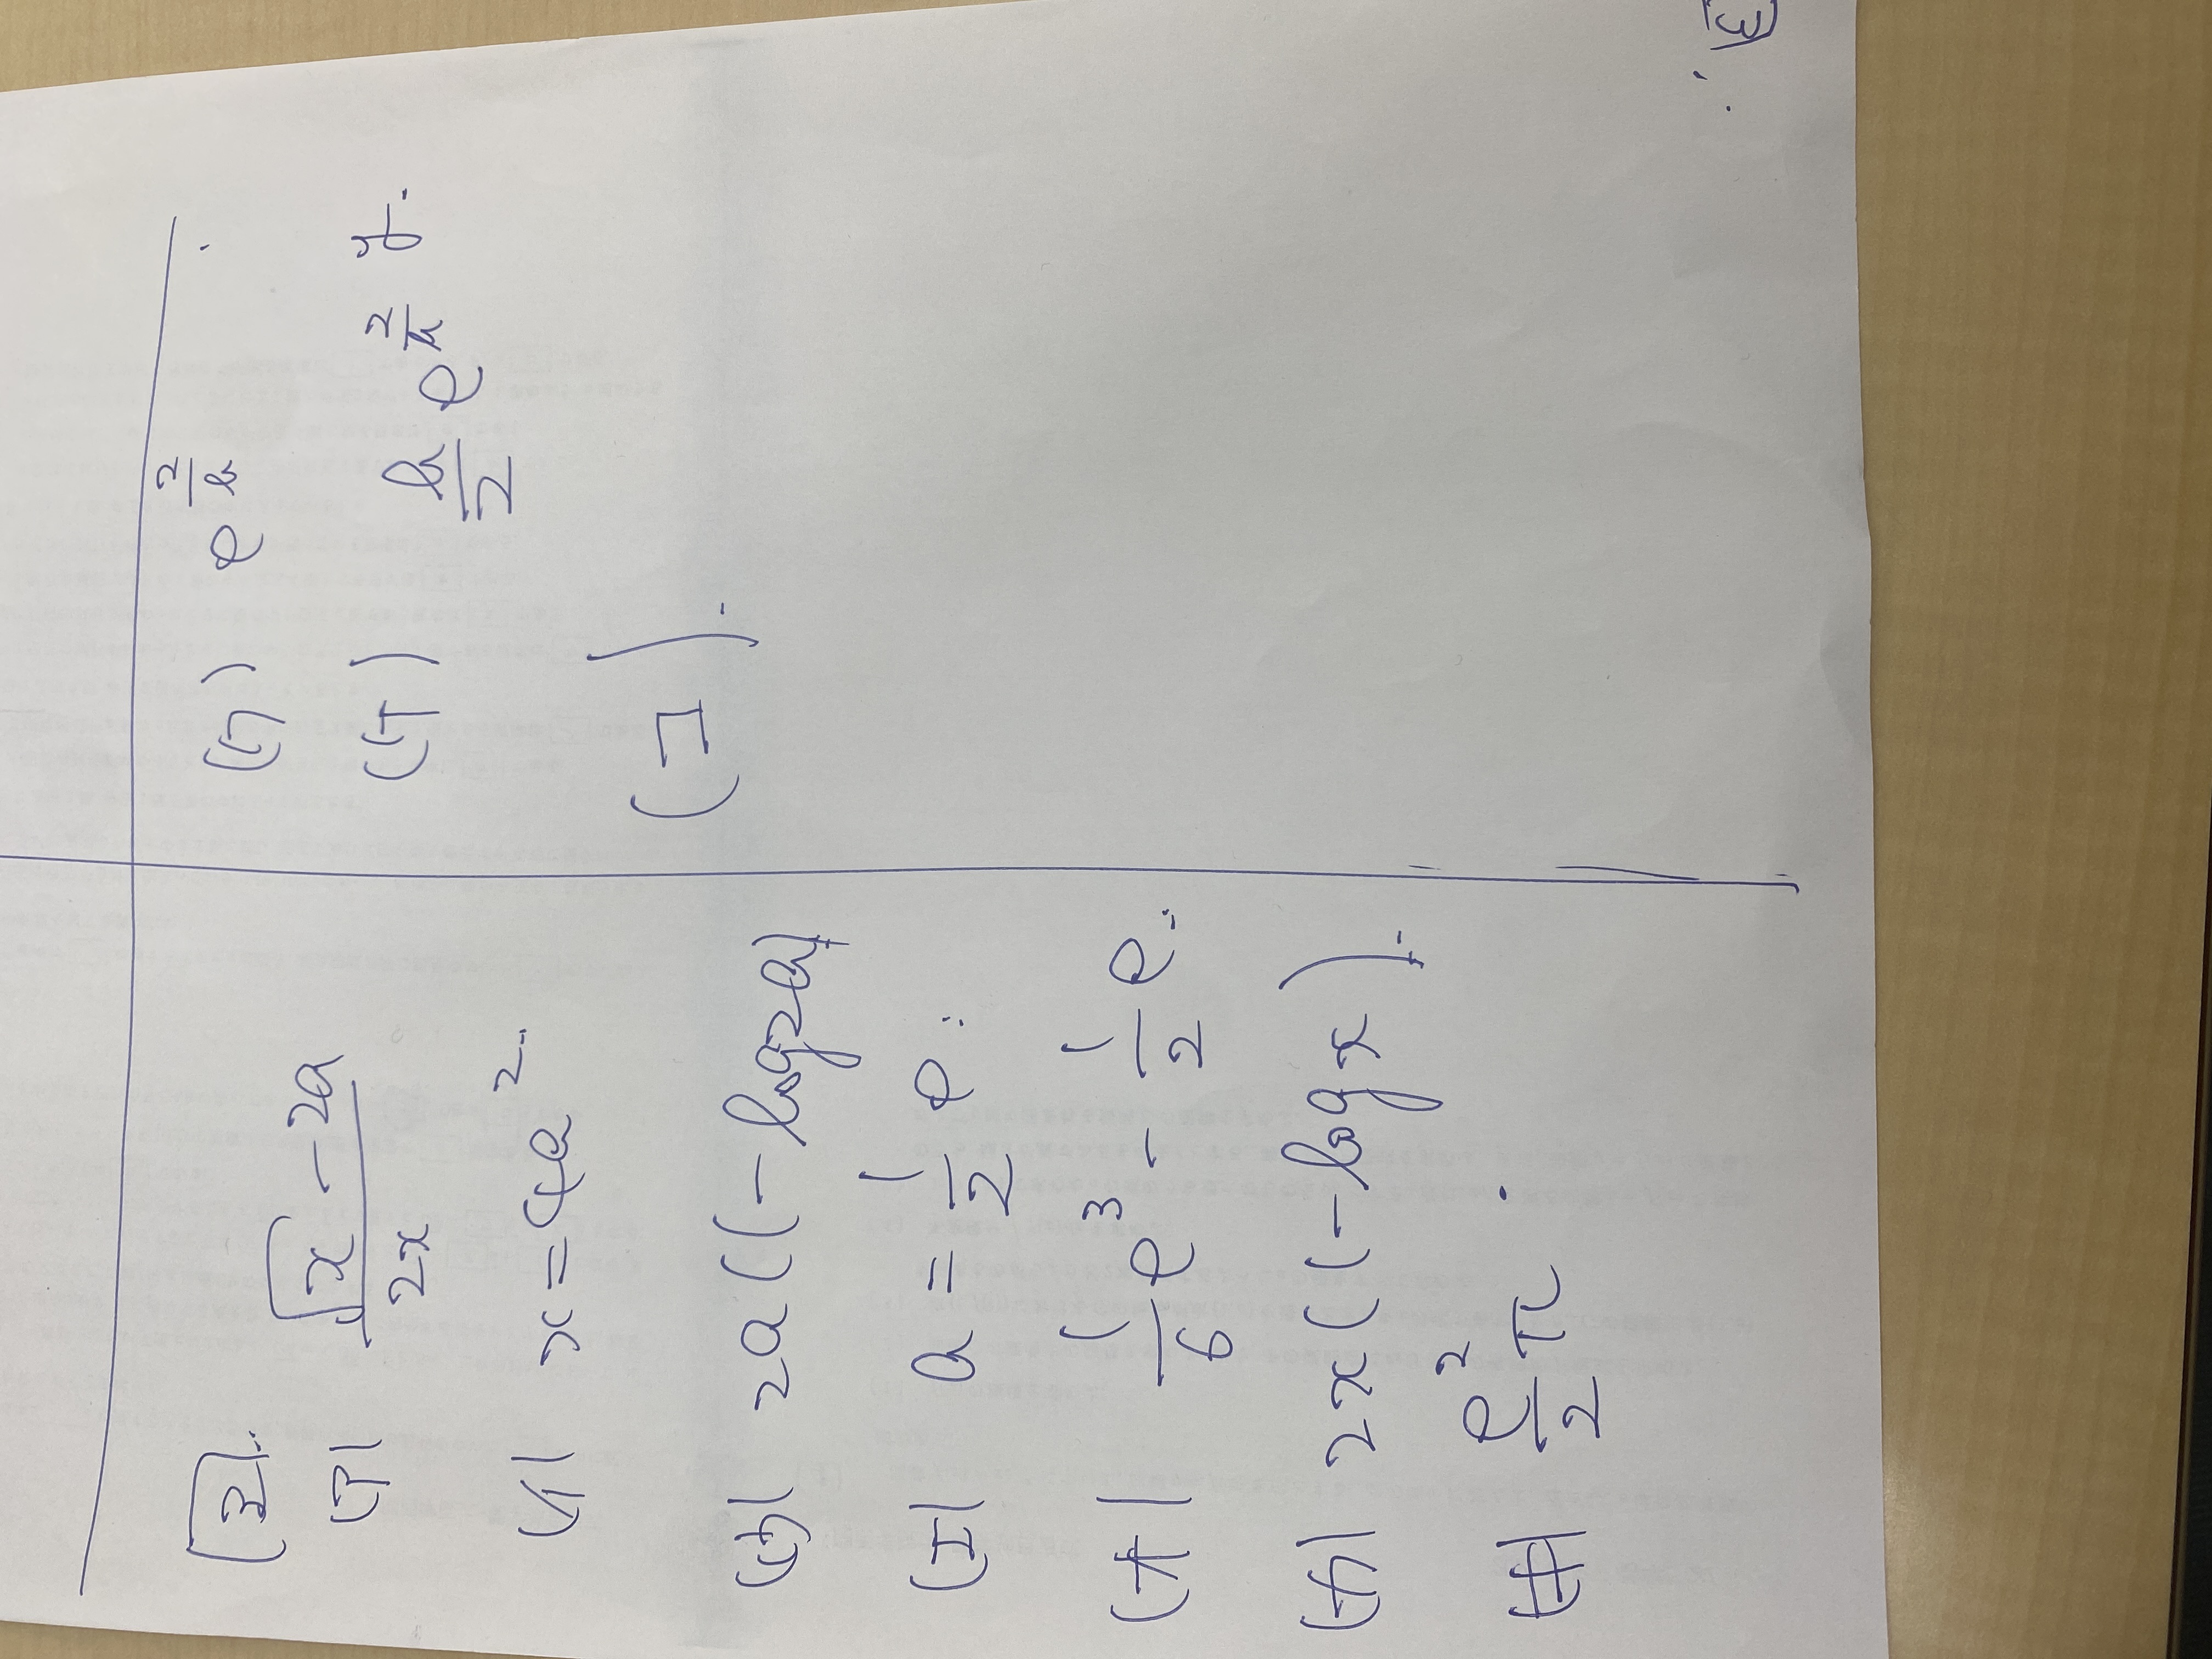 [3]
(ア) (√x - 2a)/(2x)
(イ) x = 4a²
(ウ) 2a(1 - log 2a)
(エ) a = 1/2 e
(オ) 1/6 e³ - 1/2 e
(カ) 2x(1 - log x)
(キ) e²/2 π
(ク) e
(ケ) e
(コ) 1
[3]